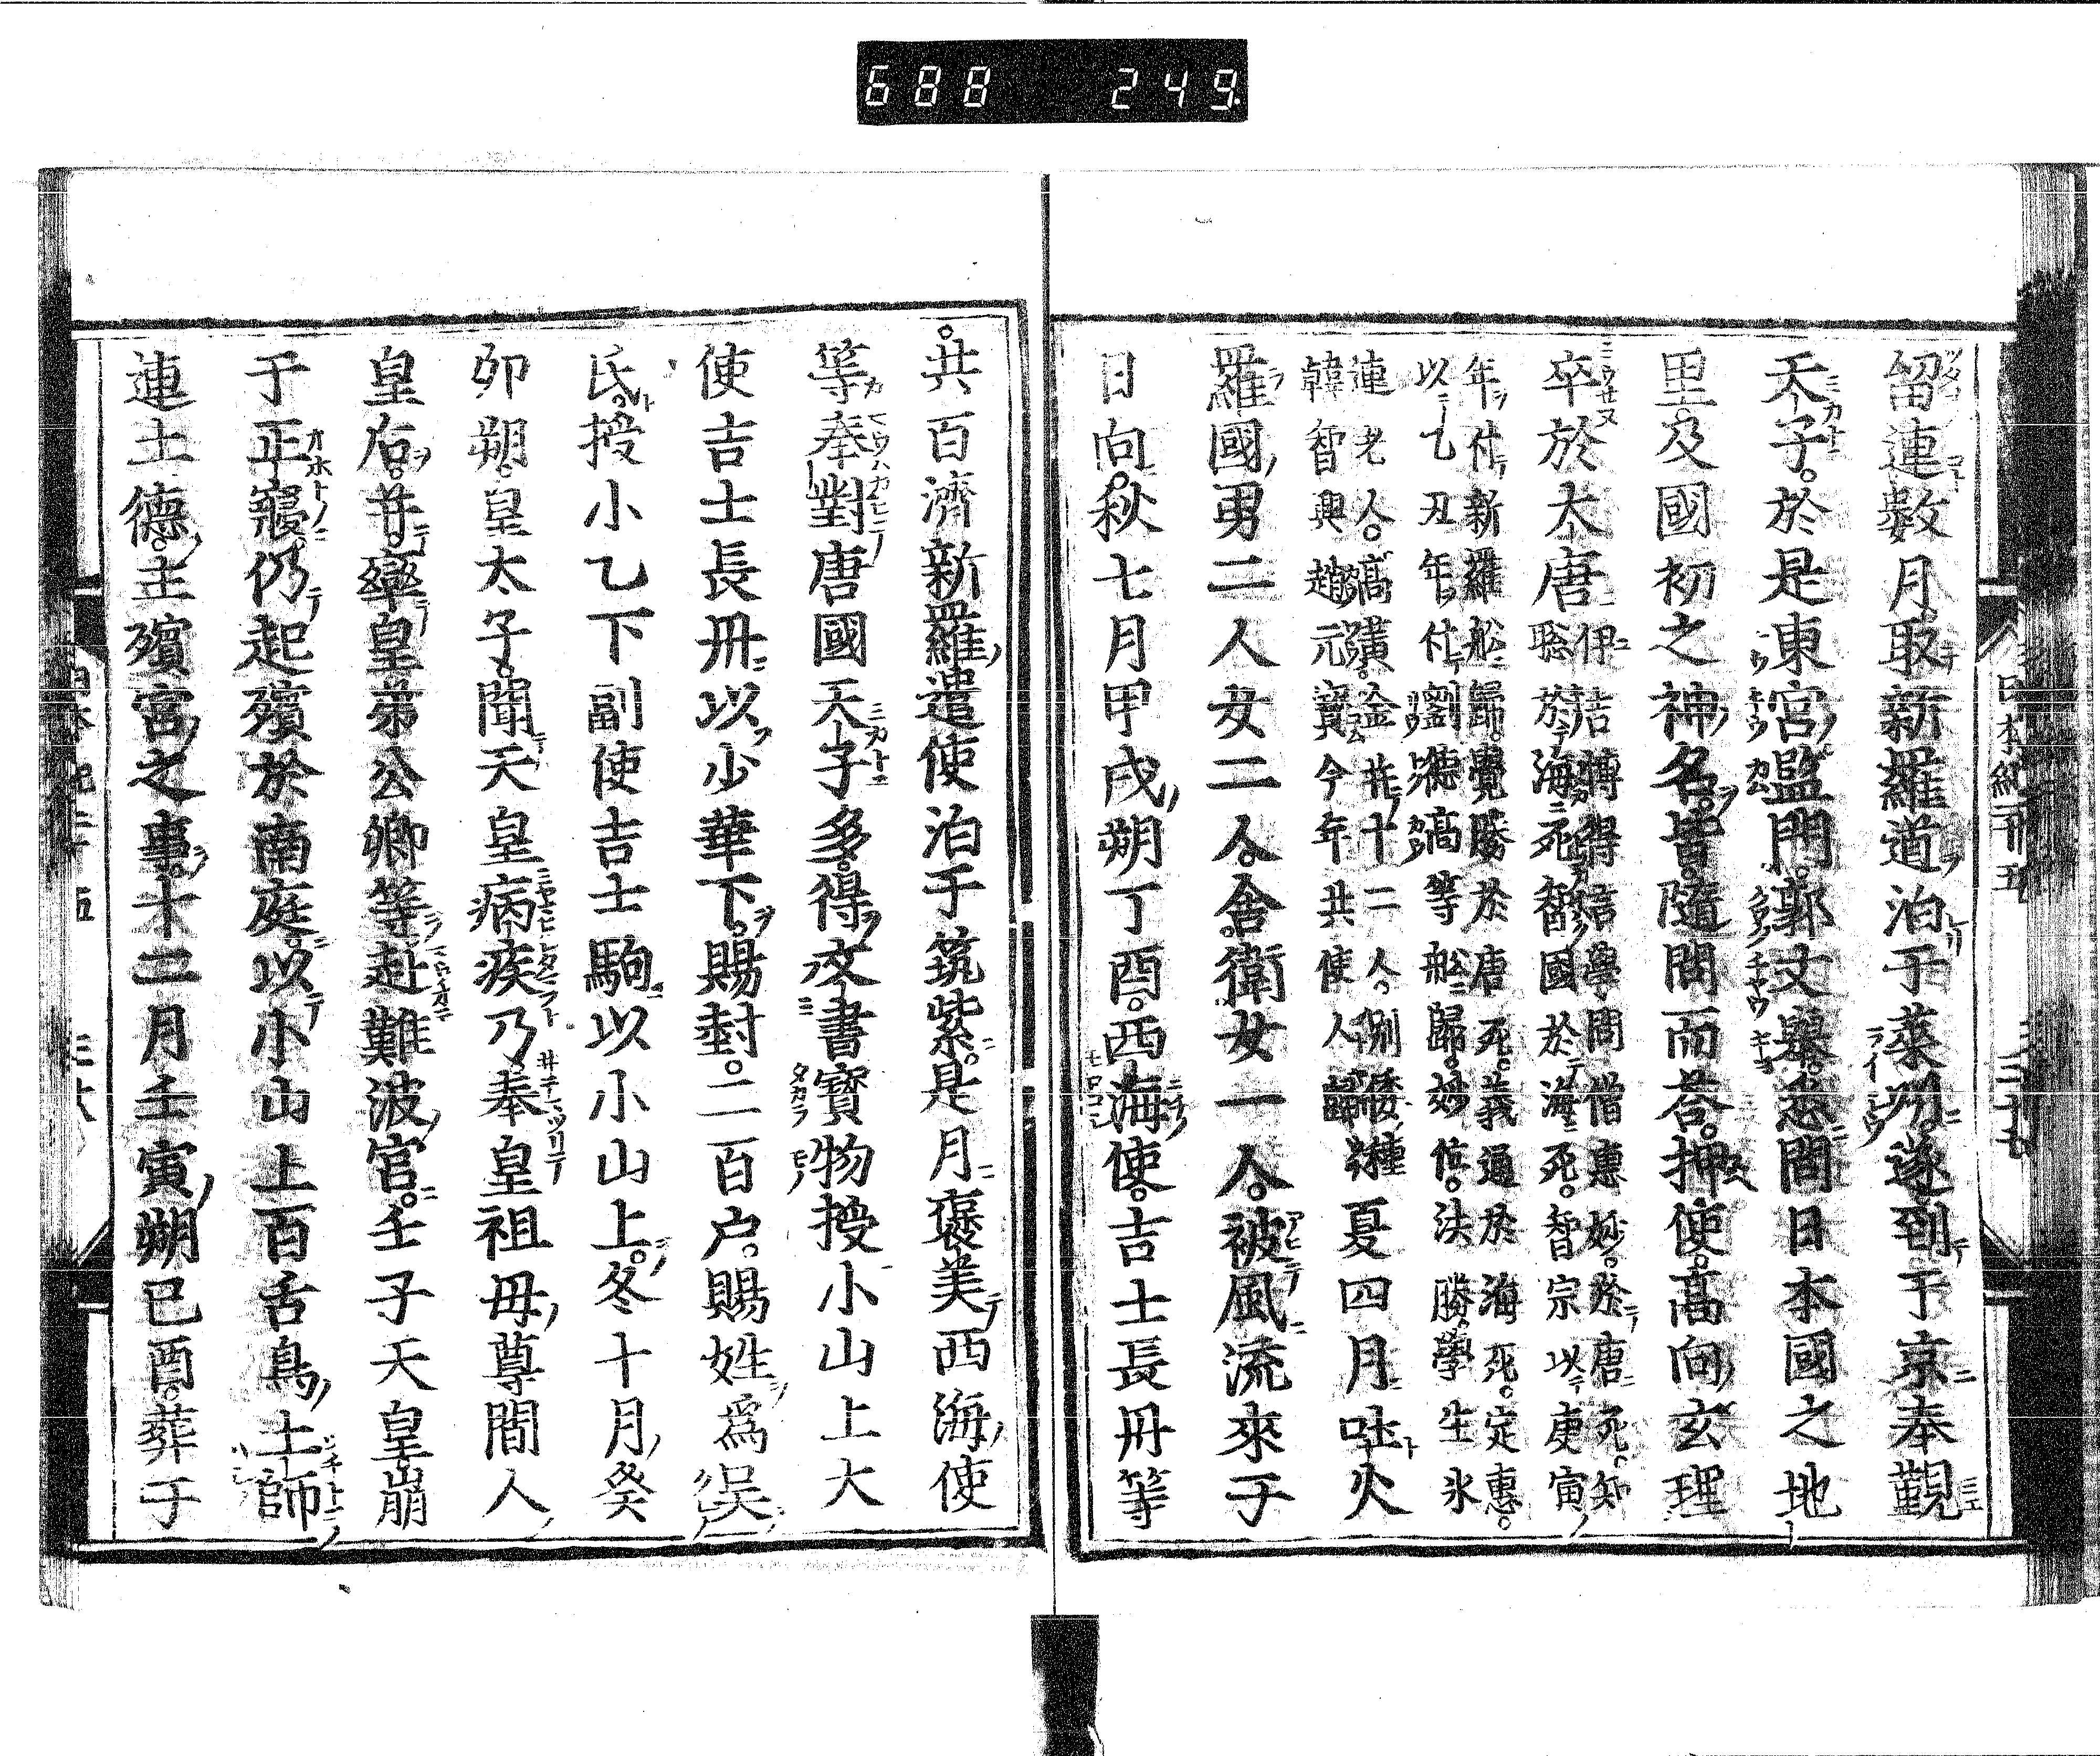 688 249
日本紀二十五
留連數月取新羅道泊于萊州遂到于京奉覲
天子於是東宮監門郭丈擧悉問日本國之地
里及國初之神名皆隨問而荅押使高向玄理
卒於大唐伊吉博得言學問僧惠妙於唐死知
聡於海死智國於海死智宗以庚寅
年付新羅舩歸覺勝於唐死義通於海死定惠
以乙丑年付劉德高等舩歸妙位法勝學生氷
連老人高黃金幷十二人別倭種
韓智興趙元寶今年共使人歸夏四月吐火
羅國男二人女二人舍衛女一人被風流來于
日向秋七月甲戌朔丁酉西海使吉士長丹等
共百濟新羅遣使泊于筑紫是月褒美西海使
等奉對唐國天子多得文書寶物授小山上大
使吉士長丹以少華下賜封二百户賜姓爲吴
氏授小乙下副使吉士駒以小山上冬十月癸
卯朔皇太子聞天皇病疾乃奉皇祖母尊間人
皇后幷率皇弟公卿等赴難波宮壬子天皇崩
于正寢仍起殯於南庭以小山上百舌鳥土師
連土德主殯宮之事十二月壬寅朔己酉葬于